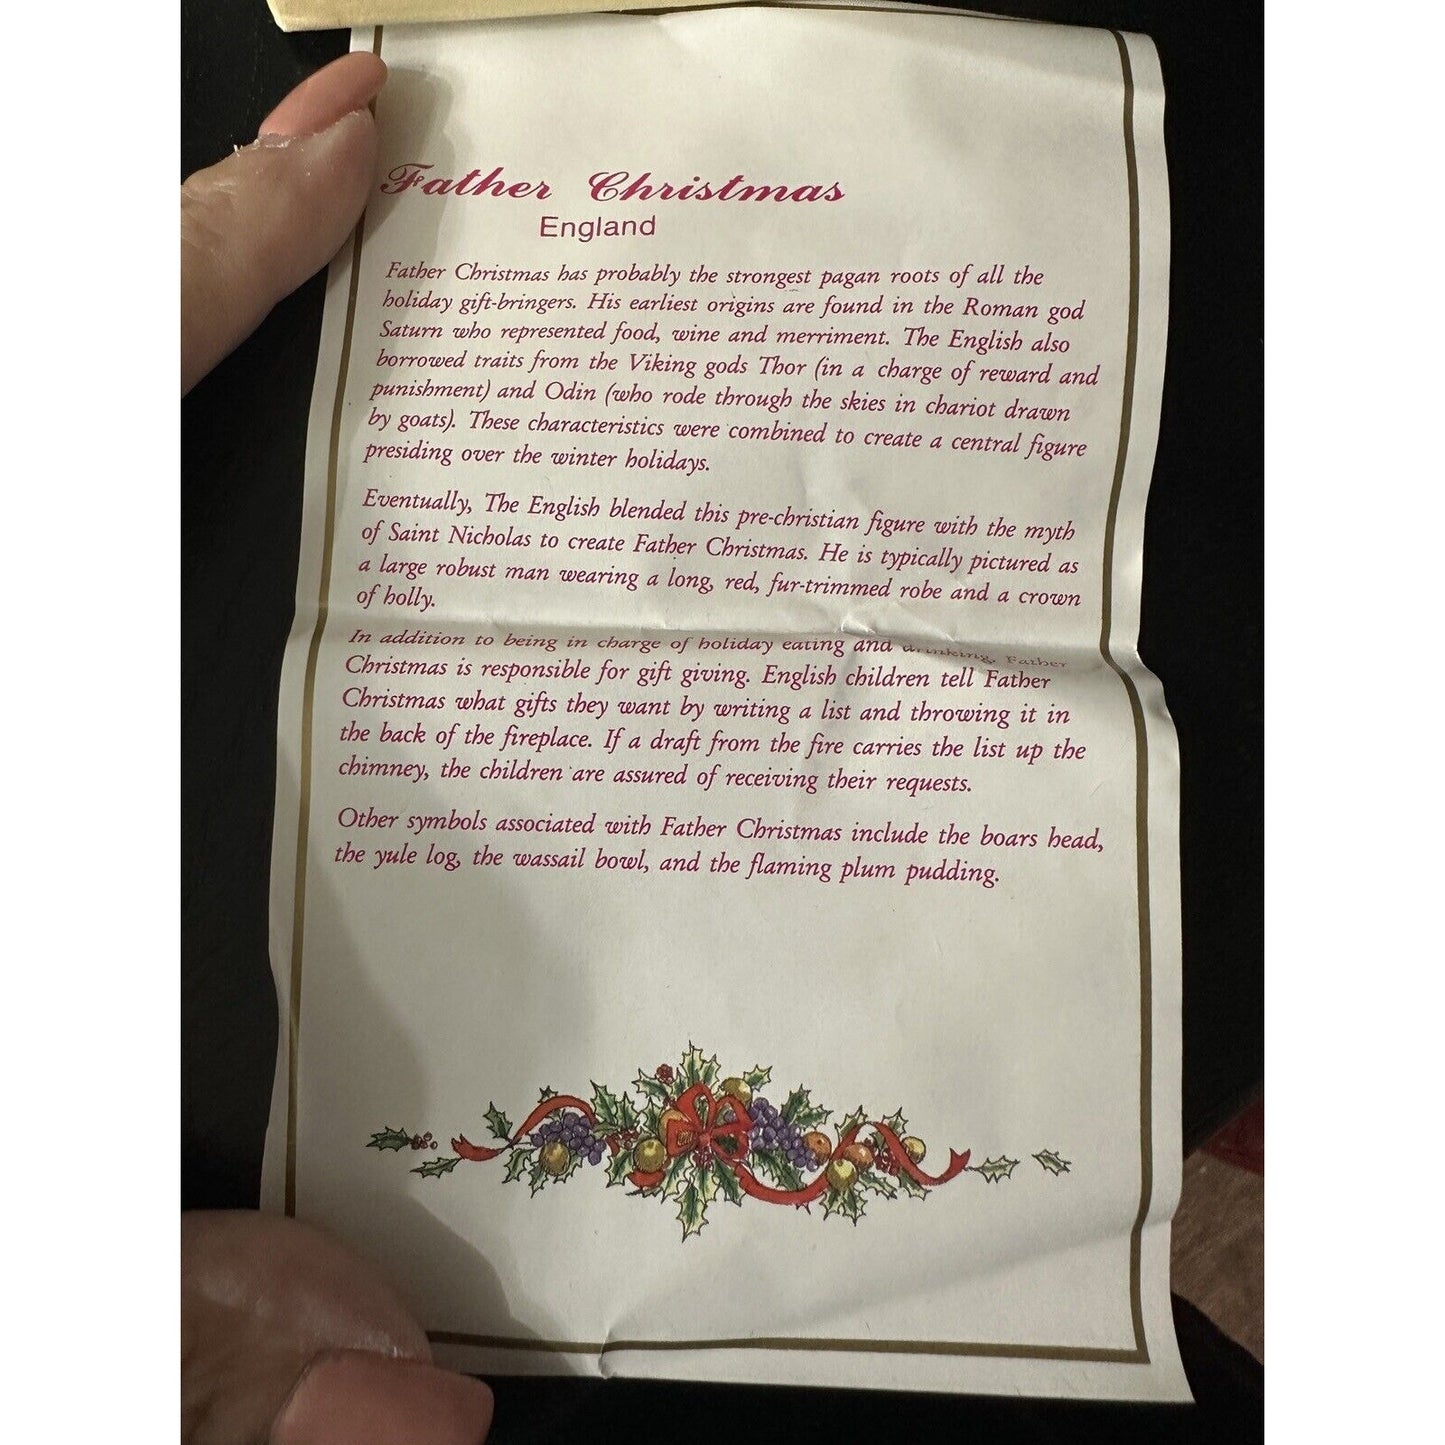 Father Christmas
England
Father Christmas has probably the strongest pagan roots of all the
holiday gift-bringers. His earliest origins are found in the Roman god
Saturn who represented food, wine and merriment. The English also
borrowed traits from the Viking gods Thor (in a charge of reward and
punishment) and Odin (who rode through the skies in chariot drawn
by goats). These characteristics were combined to create a central figure
presiding over the winter holidays.
Eventually, The English blended this pre-christian figure with the myth
of Saint Nicholas to create Father Christmas. He is typically pictured as
a large robust man wearing a long, red, fur-trimmed robe and a crown
of holly.
In addition to being in charge of holiday eating and drinking, Father
Christmas is responsible for gift giving. English children tell Father
Christmas what gifts they want by writing a list and throwing it in
the back of the fireplace. If a draft from the fire carries the list up the
chimney, the children are assured of receiving their requests.
Other symbols associated with Father Christmas include the boars head,
the yule log, the wassail bowl, and the flaming plum pudding.